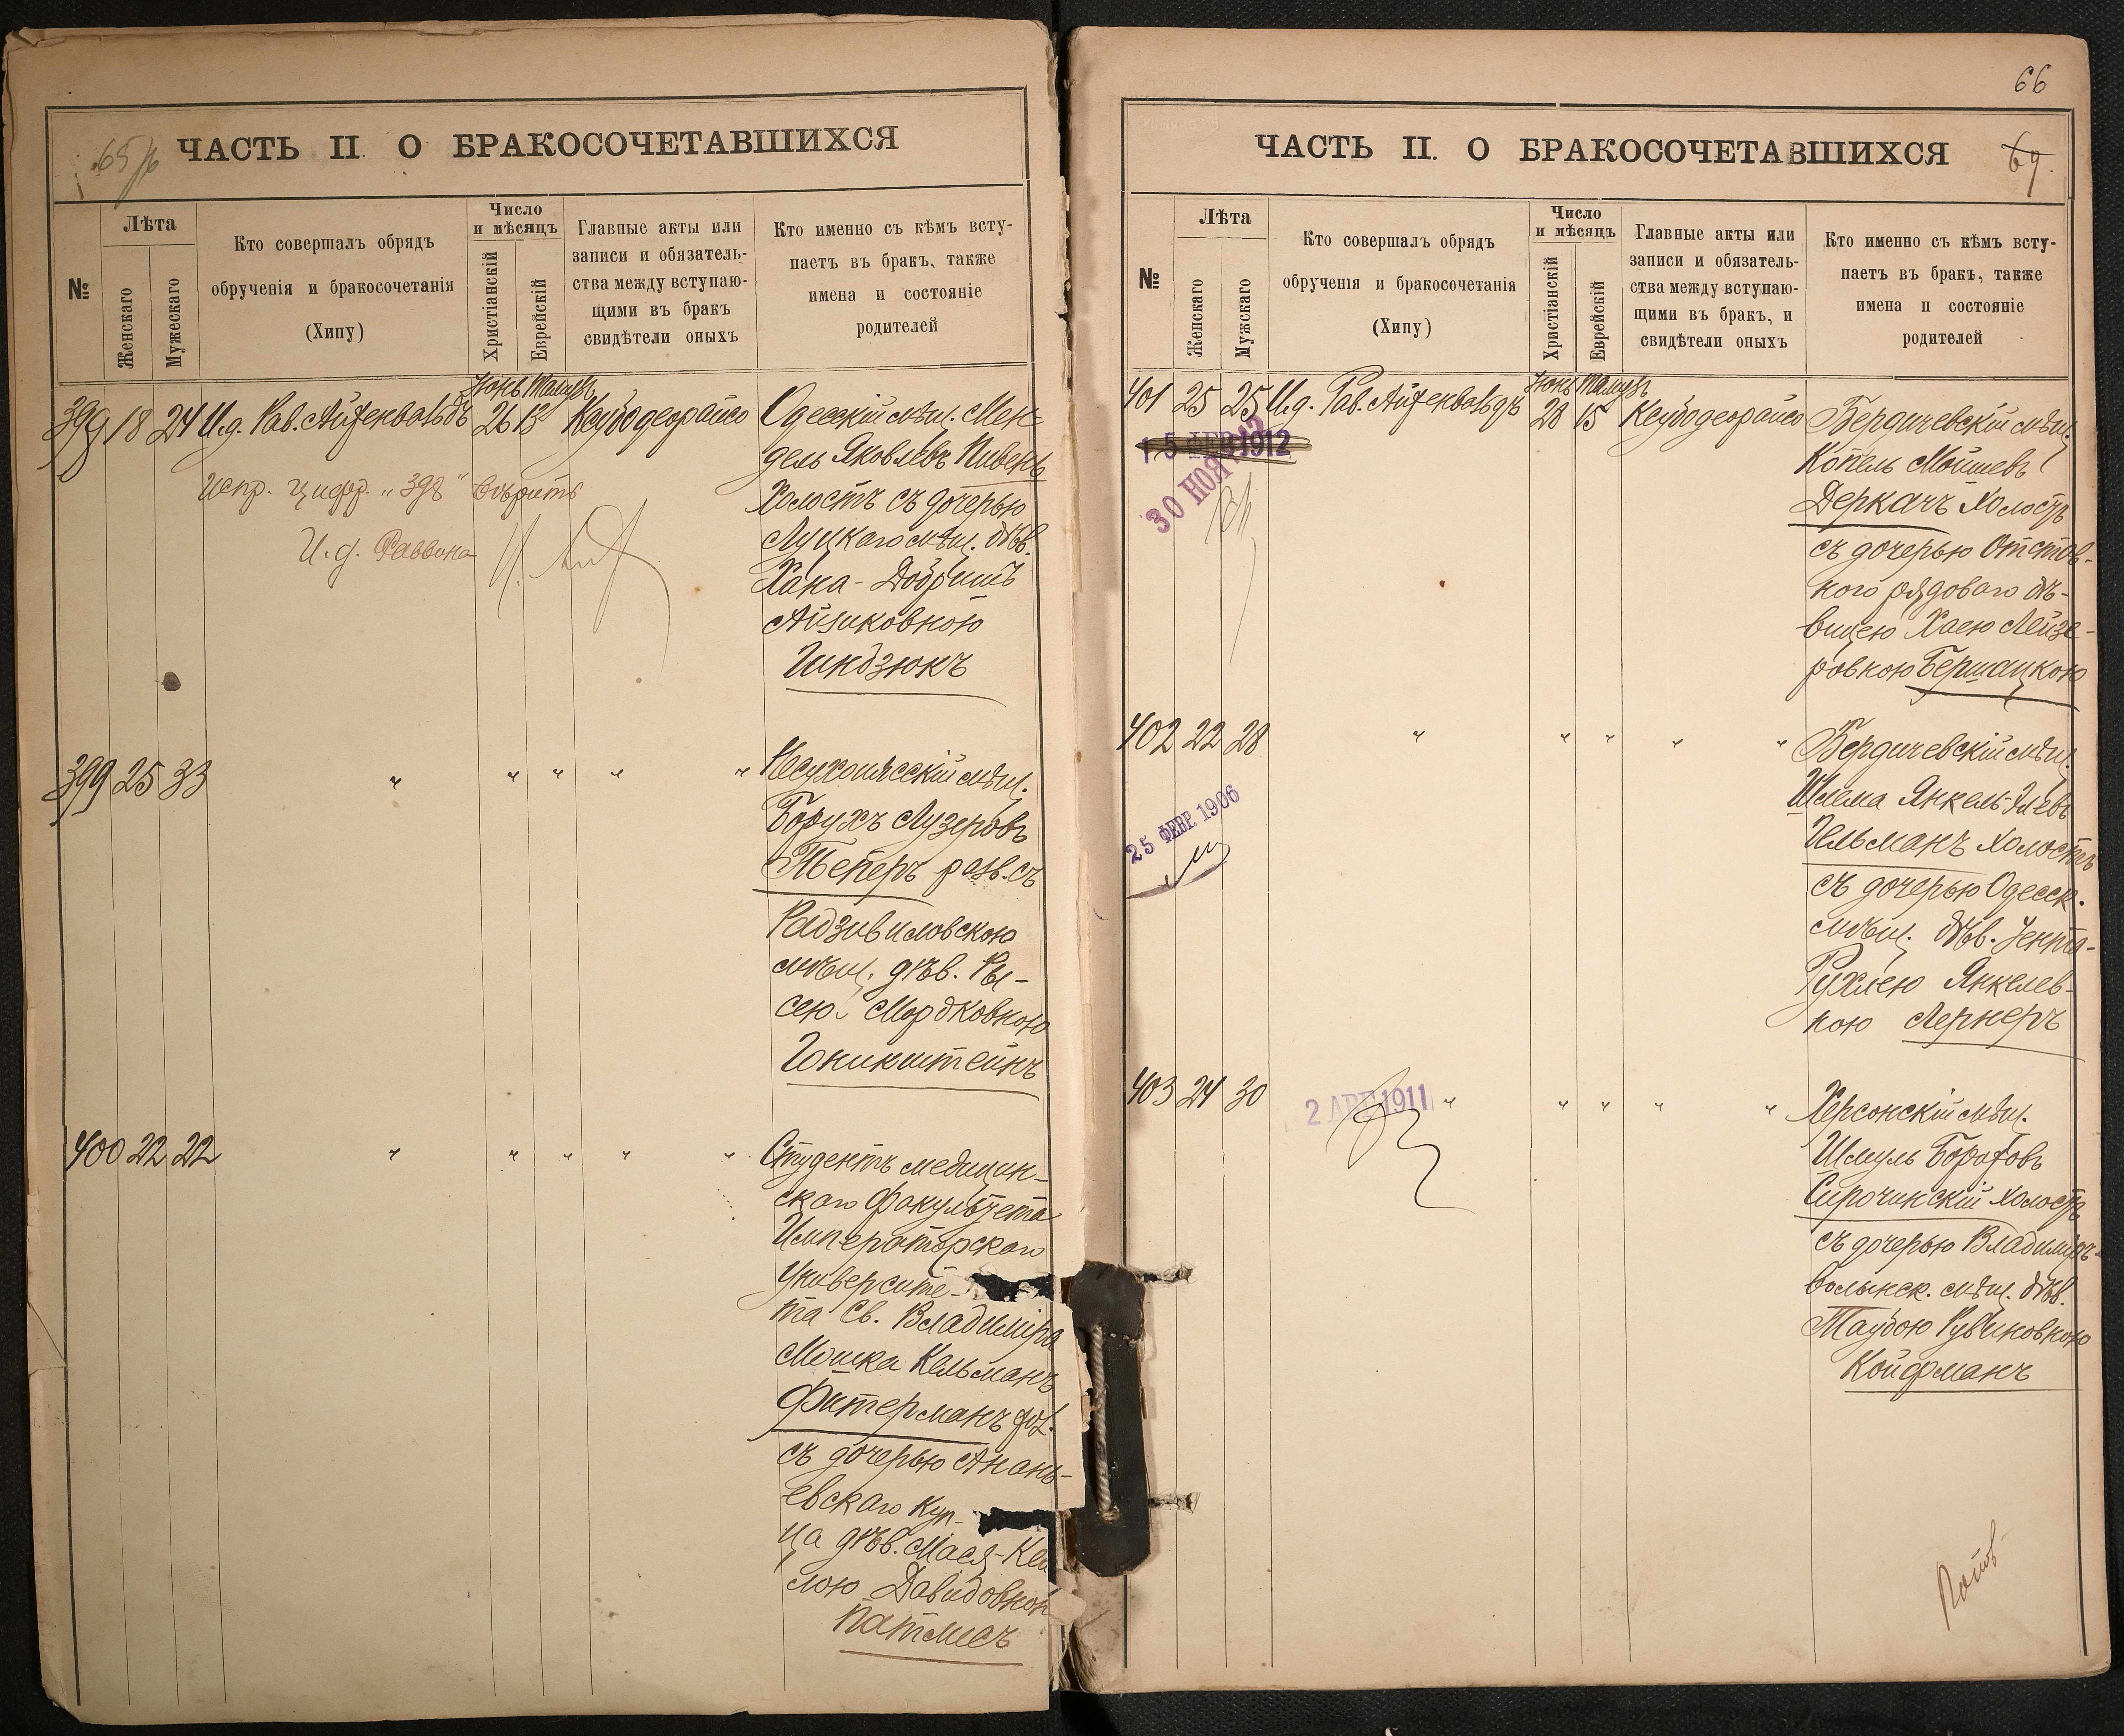 65 об
ЧАСТЬ II О БРАКОСОЧЕТАВШИХСЯ
№
Лѣта
Женскаго
Мужескаго
Кто совершалъ обрядъ
обрученія и бракосочетанія
(Хипу)
Число
и мѣсяцъ
Христіанскій
Еврейскій
Главные акты или
записи и обязатель-
ства между вступаю-
щими въ бракъ
свидѣтели оныхъ
Кто именно съ кѣмъ всту-
паетъ въ бракъ, также
имена и состояніе
родителей
Іюнь Тамузъ
18 24 И.д. Рав. Айзенвальдъ 26 13
Испр. цифр. „398“ вѣрить
И.д. Раввина
Одесскій мѣщ. Мен-
дель Яковлевъ Пивень
Холостъ съ дочерью
Луцкаго мѣщ. дѣв.
Хана-Добришъ
Айзиковною
Гиндзюкъ
399 25 33 " " " " "
мѣщ.
Борухъ Лузеровъ
Теперъ разв. съ
Радзивиловскою
мѣщ. дѣв. Ры-
сею Мордковною
400 22 22 " " " " "
Студентъ медицин-
скаго факультета
Императорскаго
Университе-
та Св. Владиміра
Мошка Кельманъ
Фитерманъ
съ дочерью Анань-
евскаго Куп-
ца дѣв. Мася-Кей
лою Давидовной
Патлисъ
66
69.
ЧАСТЬ II. О БРАКОСОЧЕТАВШИХСЯ
№
Лѣта
Женскаго
Мужскаго
Кто совершалъ обрядъ
обрученія и бракосочетанія
(Хипу)
Число
и мѣсяцъ
Христіанскій
Еврейскій
Главные акты или
записи и обязатель-
ства между вступаю-
щими въ бракъ, и
свидѣтели оныхъ
Кто именно съ кѣмъ всту-
паетъ въ бракъ, также
имена и состояніе
родителей
Іюнь Тамузъ
401 25 25 И.д. Рав. Айзенвальдъ 28 15
15 ФЕВ 1912
30 НОЯ 12
Бердичевскій мѣщ.
Копель Мойшевъ
Деркачъ Холостъ
съ дочерью Отстав-
ного рядоваго дѣ-
вицею Хаею Лейзе-
ровною Бершацкою
402 22 28 " " " " "
25 ФЕВР. 1906
Бердичевскій мѣщ.
Шлема Янкель-Элевъ
Гельманъ холостъ
съ дочерью Одесск.
мѣщ. дѣв. Зента-
Рухлею Янкелев-
ною Лернеръ
403 24 30 " " " " "
2 АПР 1911
Херсонскій мѣщ.
Шмуль Боруховъ
Сирочинскій холостъ
съ дочерью Владиміръ-
волынск. мѣщ. дѣв.
Таубою Рувиновною
Койфманъ